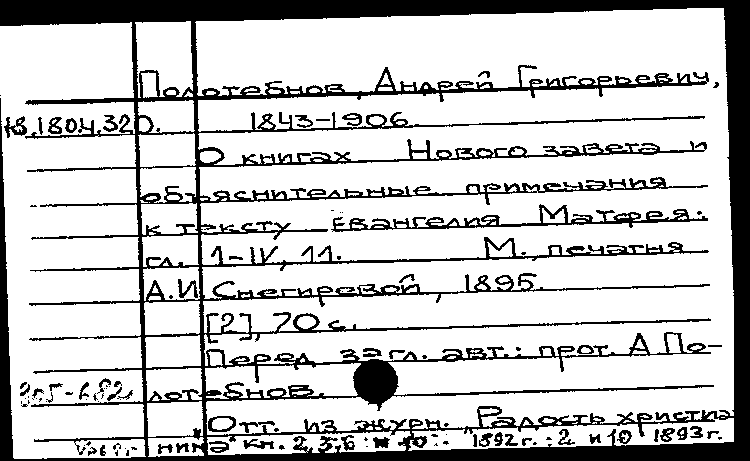 Полотебнов, Андрей Григорьевич,
18.180.4.320. 1843-1906.
О книгах Нового завета и
объяснительные примечания
к тексту Евангелия Матфея:
гл. 1-IV, 11. М., печатня
А.И. Снегиревой, 1895.
[2], 70 с.
Перед загл. авт.: прот. А По-
лотебнов.
305-682
Отт. из журн. "Радость христиа-
нина" кн. 2, 3, 6 и 10: 1892г.: 2 и 10 1893г.